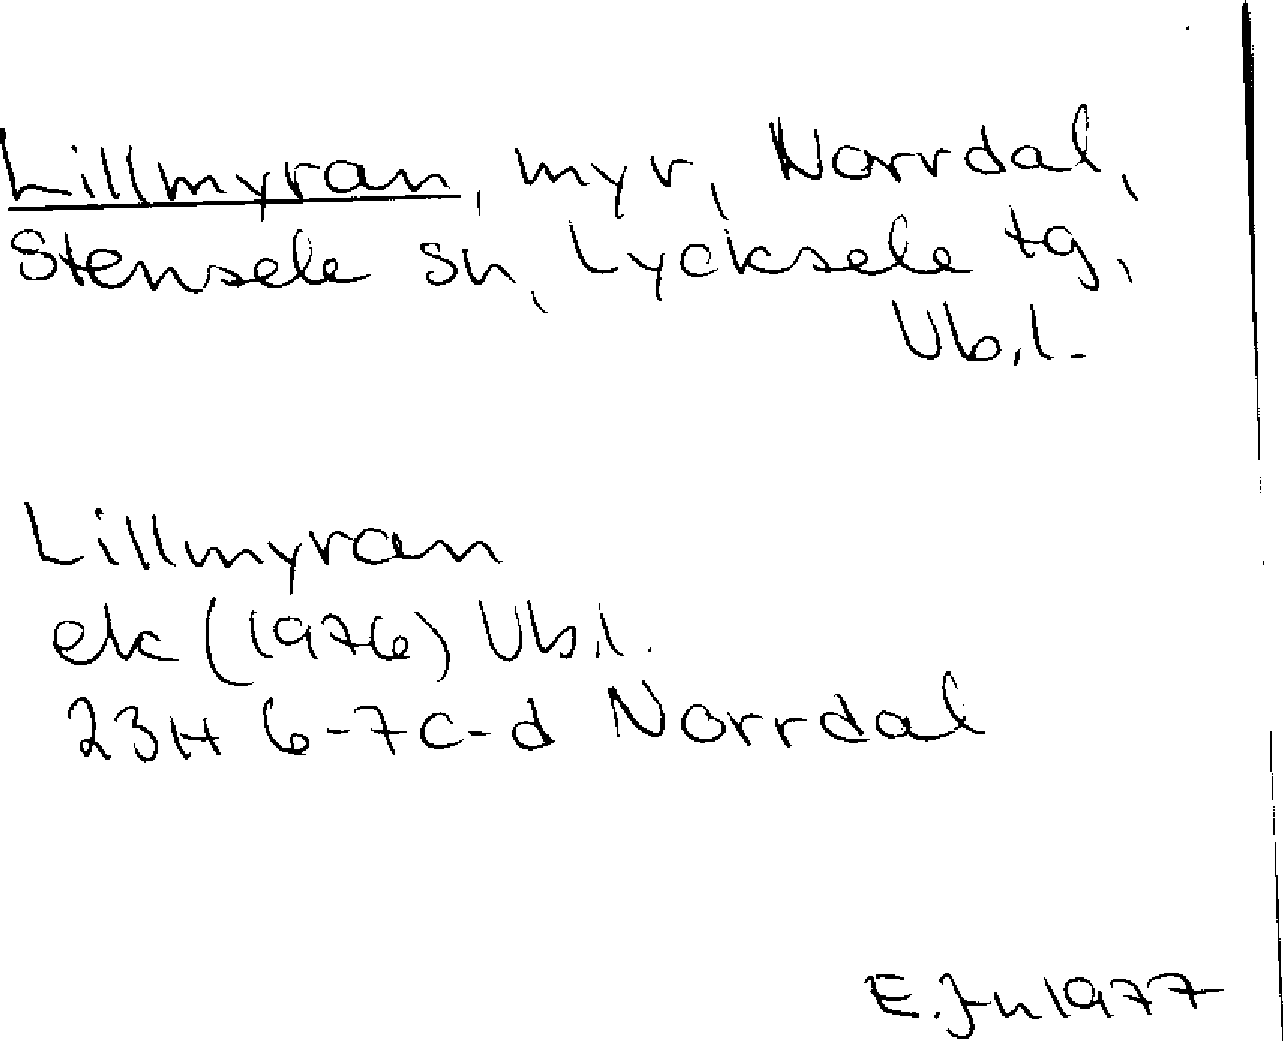 Lillmyran, myr, Norrdal,
Stensele sn, Lycksele tg,
Vb.l.
Lillmyran
ek (1976) Vb.l.
23H 6-7c-d Norrdal
E. Jn 1977